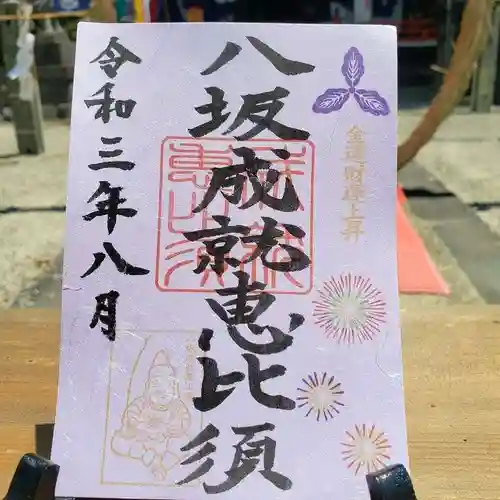 金運財運上昇
八坂成就恵比須
令和三年八月